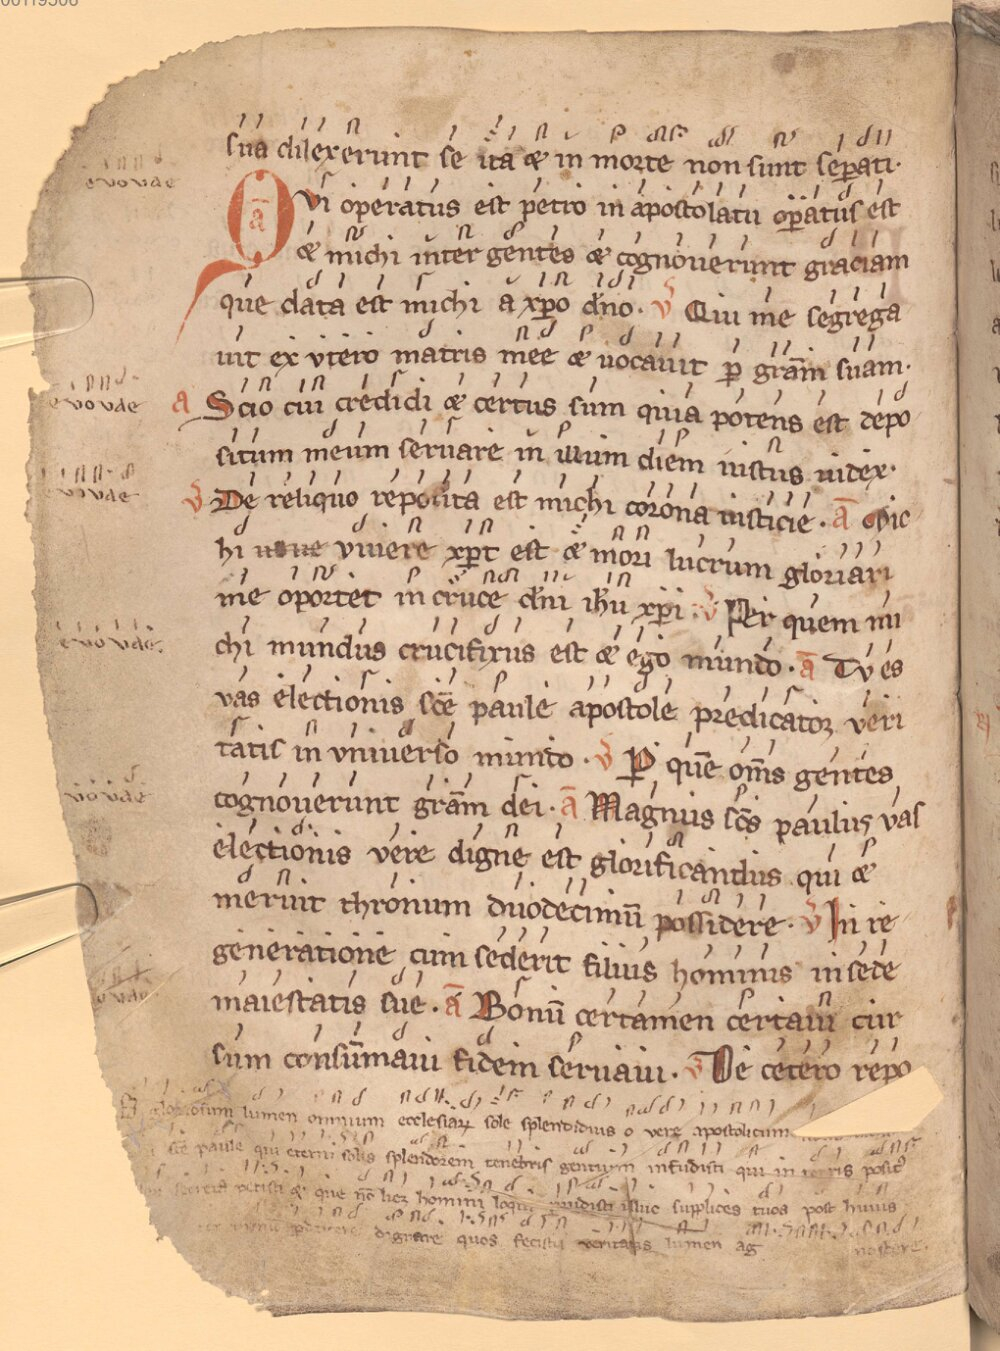 sua dilexerunt se ita & in morte non sunt sep̄ati·
Qui operatus est petro in apostolatu op̄atus est
& michi inter gentes & cognouerunt graciam
que data est michi a xp̄o dn̄o· v̄ Qui me segrega
uit ex vtero matris mee & uocauit p̄ grām suam·
a Scio cui credidi & certus sum quia potens est depo
situm meum seruare in illum diem iustus iudex·
v̄ De reliquo reposita est michi corona iusticie· ā Mic
hi uiuere xp̄c est & mori lucrum gloriari
me oportet in cruce dn̄i ih̄u xp̄i· v̄ Per quem mi
chi mundus crucifixus est & ego mundo· ā Tu es
vas electionis sc̄e paule apostole predicatoꝝ veri
tatis in vniuerso mundo· v̄ P̄ quē om̄s gentes
cognouerunt grām dei· ā Magnus sc̄s paulus vas
electionis vere digne est glorificandus qui &
meruit thronum duodecimū possidere· v̄ In re
generatione cum sederit filius hominis in sede
maiestatis sue· ā Bonū certamen certaui cur
sum consūmaui fidem seruaui· v̄ De cetero repo
gloriosum lumen omnium ecclesiaꝝ sole splendidius o vere apostolicum
sc̄e paule qui eterni solis splendorem tenebris gentium infudisti qui in terris posit9
secreta petisti & que nō licꝫ homini loqui uidisti illuc supplices tuos post huius
digrare quos fecisti veritatis lumen ag nostere·
euouae
euouae
euouae
euouae
euouae